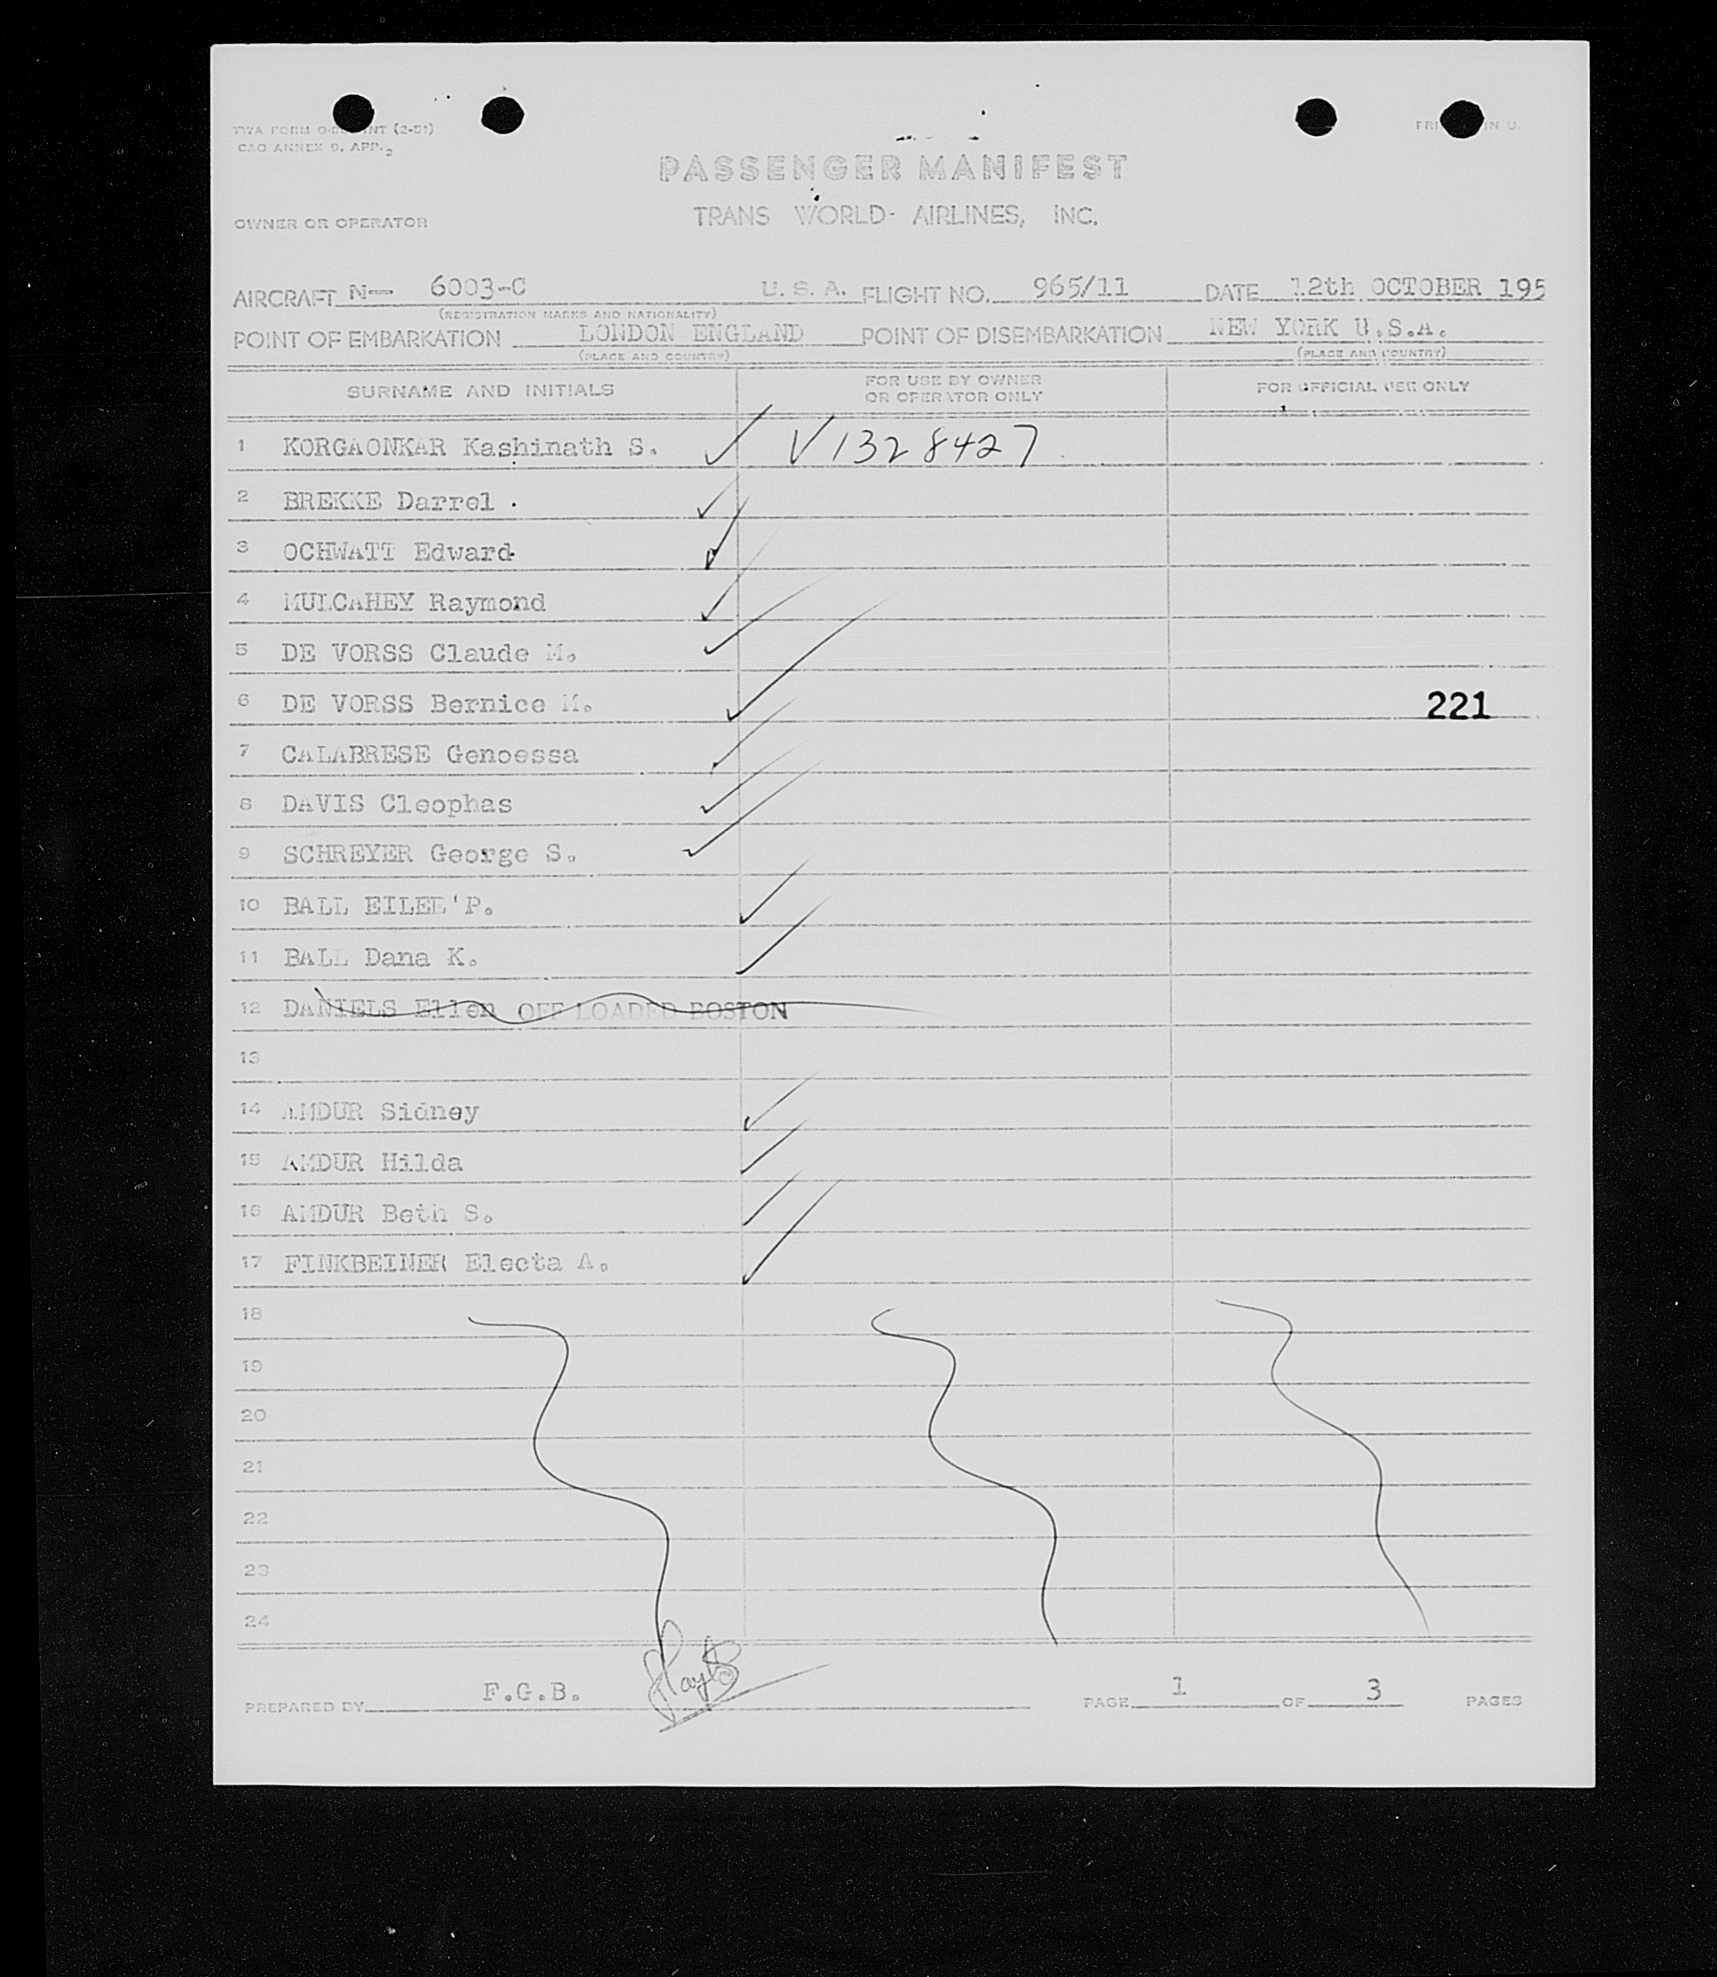 TWA FORM (2-51)
CAO ANNEX 9, APP. 2
PASSENGER MANIFEST
OWNER OR OPERATOR TRANS WORLD AIRLINES, INC.
AIRCRAFT N— 6003-C U. S. A. FLIGHT NO. 965/11 DATE 12th OCTOBER 195
(REGISTRATION MARKS AND NATIONALITY)
POINT OF EMBARKATION LONDON ENGLAND POINT OF DISEMBARKATION NEW YORK U.S.A.
(PLACE AND COUNTRY) (PLACE AND COUNTRY)
SURNAME AND INITIALS FOR USE BY OWNER OR OPERATOR ONLY FOR OFFICIAL USE ONLY
1 KORGAONKAR Kashinath S. V1328427
2 BREKKE Darrel .
3 OCHWATT Edward
4 MULCAHEY Raymond
5 DE VORSS Claude M.
6 DE VORSS Bernice M. 221
7 CALABRESE Genoessa
8 DAVIS Cleophas
9 SCHREYER George S.
10 BALL P.
11 BALL Dana K.
12 DANIELS Ellen OFF LOADED BOSTON
13
14 AMDUR Sidney
15 AMDUR Hilda
16 AMDUR Beth S.
17 FINKBEINER Electa A.
18
19
20
21
22
23
24
PREPARED BY F.G.B. PAGE 1 OF 3 PAGES